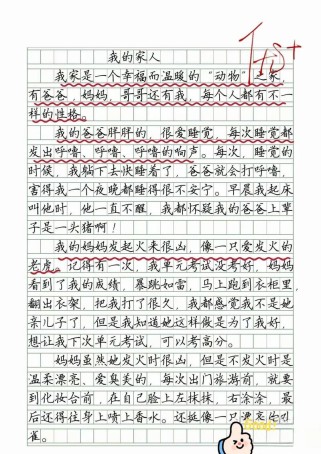 我的家人
优+
我家是一个幸福而温暖的“动物”之家，
有爸爸，妈妈，哥哥还有我，每个人都有不一
样的性格。
我的爸爸胖胖的，很爱睡觉，每次睡觉都
发出呼噜、呼噜、呼噜的响声。每次，睡觉的
时候，我躺下去快睡着了，爸爸就会打呼噜，
害得我一个夜晚都睡得很不安宁。早晨我起床
叫他时，他一直不醒，我都怀疑我的爸爸上辈
子是一头猪啊！
我的妈妈发起火来很凶，像一只爱发火的
老虎。记得有一次，我单元考试没考好，妈妈
看到了我的成绩，暴跳如雷，马上跑到衣柜里，
翻出衣架，把我打了很久，我都感觉我不是她
亲儿子了，但是我知道她这样做是为了我好，
想让我下次单元考试，可以考高分。
妈妈虽然她发火时很凶，但是不发火时是
温柔漂亮、爱臭美的，每次出门旅游前，就要
到化妆台前，在自己脸上左抹抹，右涂涂，最
后还得往身上喷上香水。还挺像一只漂亮的孔
雀。